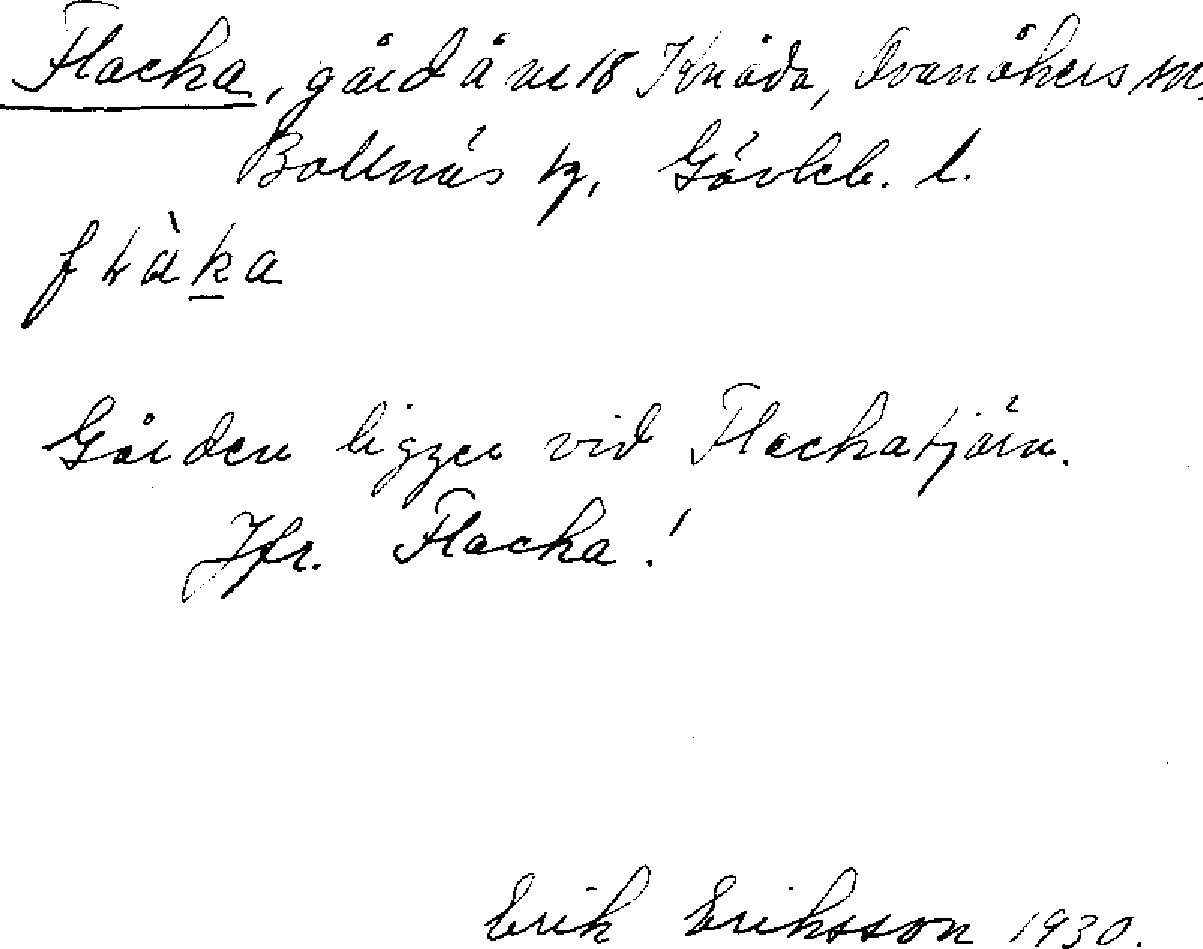 Flacka, gård å nr 18 Knåda, Ovanåkers sn,
Bollnäs tg, Gävleb. l.
fɫàka
Gården ligger vid Flackatjärn.
Jfr. Flacka!
Erik Eriksson 1930.